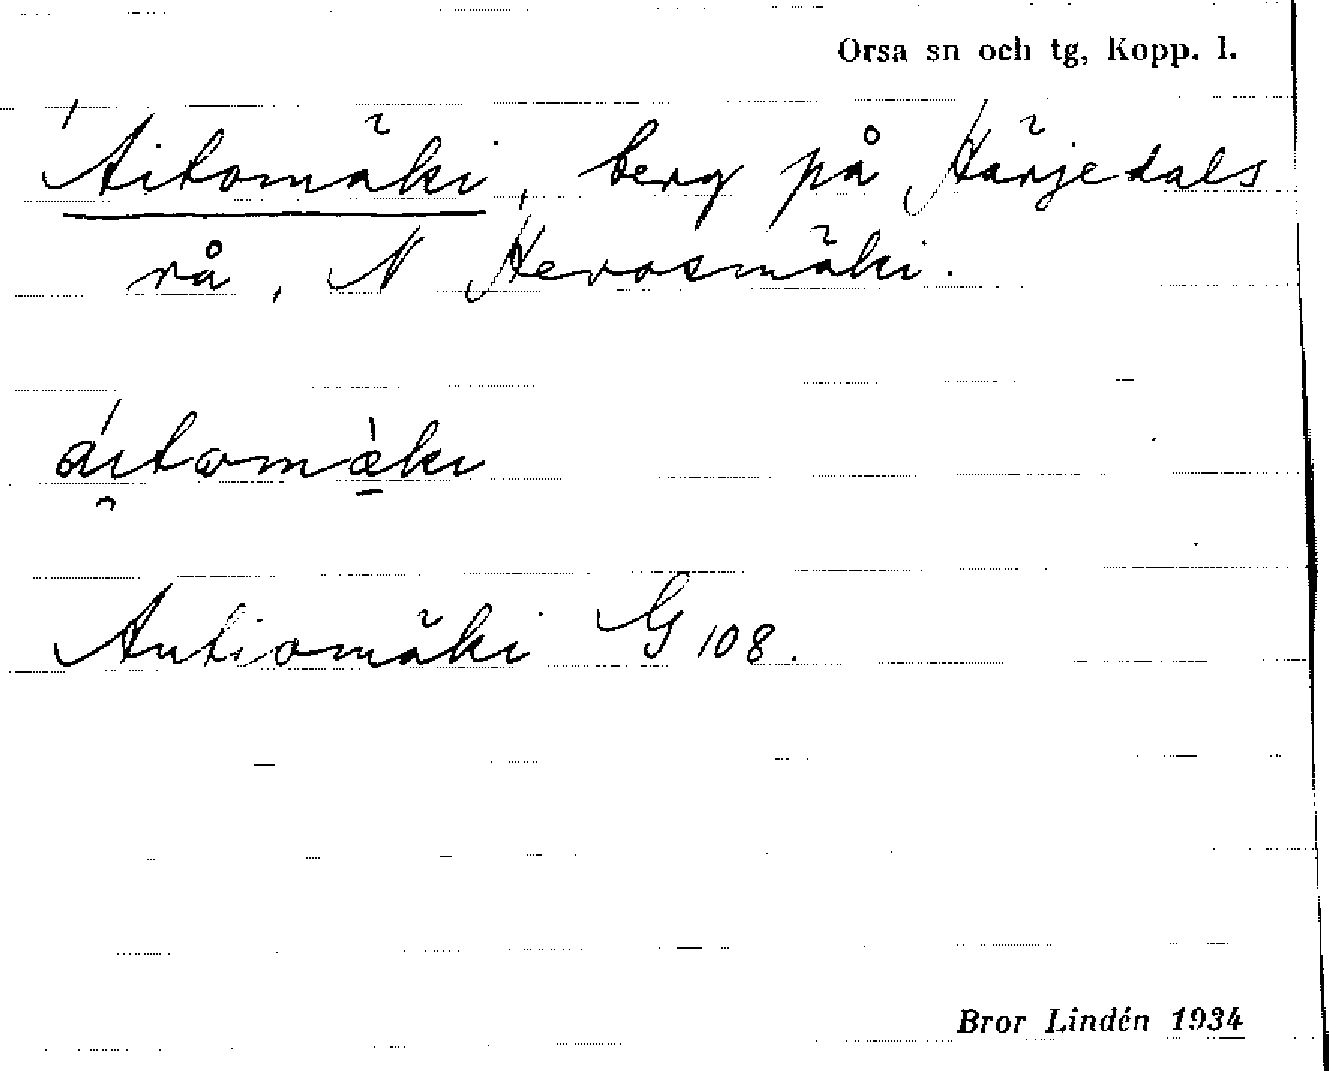 Orsa sn och tg, Kopp. l.
'Aitomäki, berg på Härjedals
rå, N Hevosmäki.
áitomæki
Autiomäki G 108.
Bror Lindén 1934